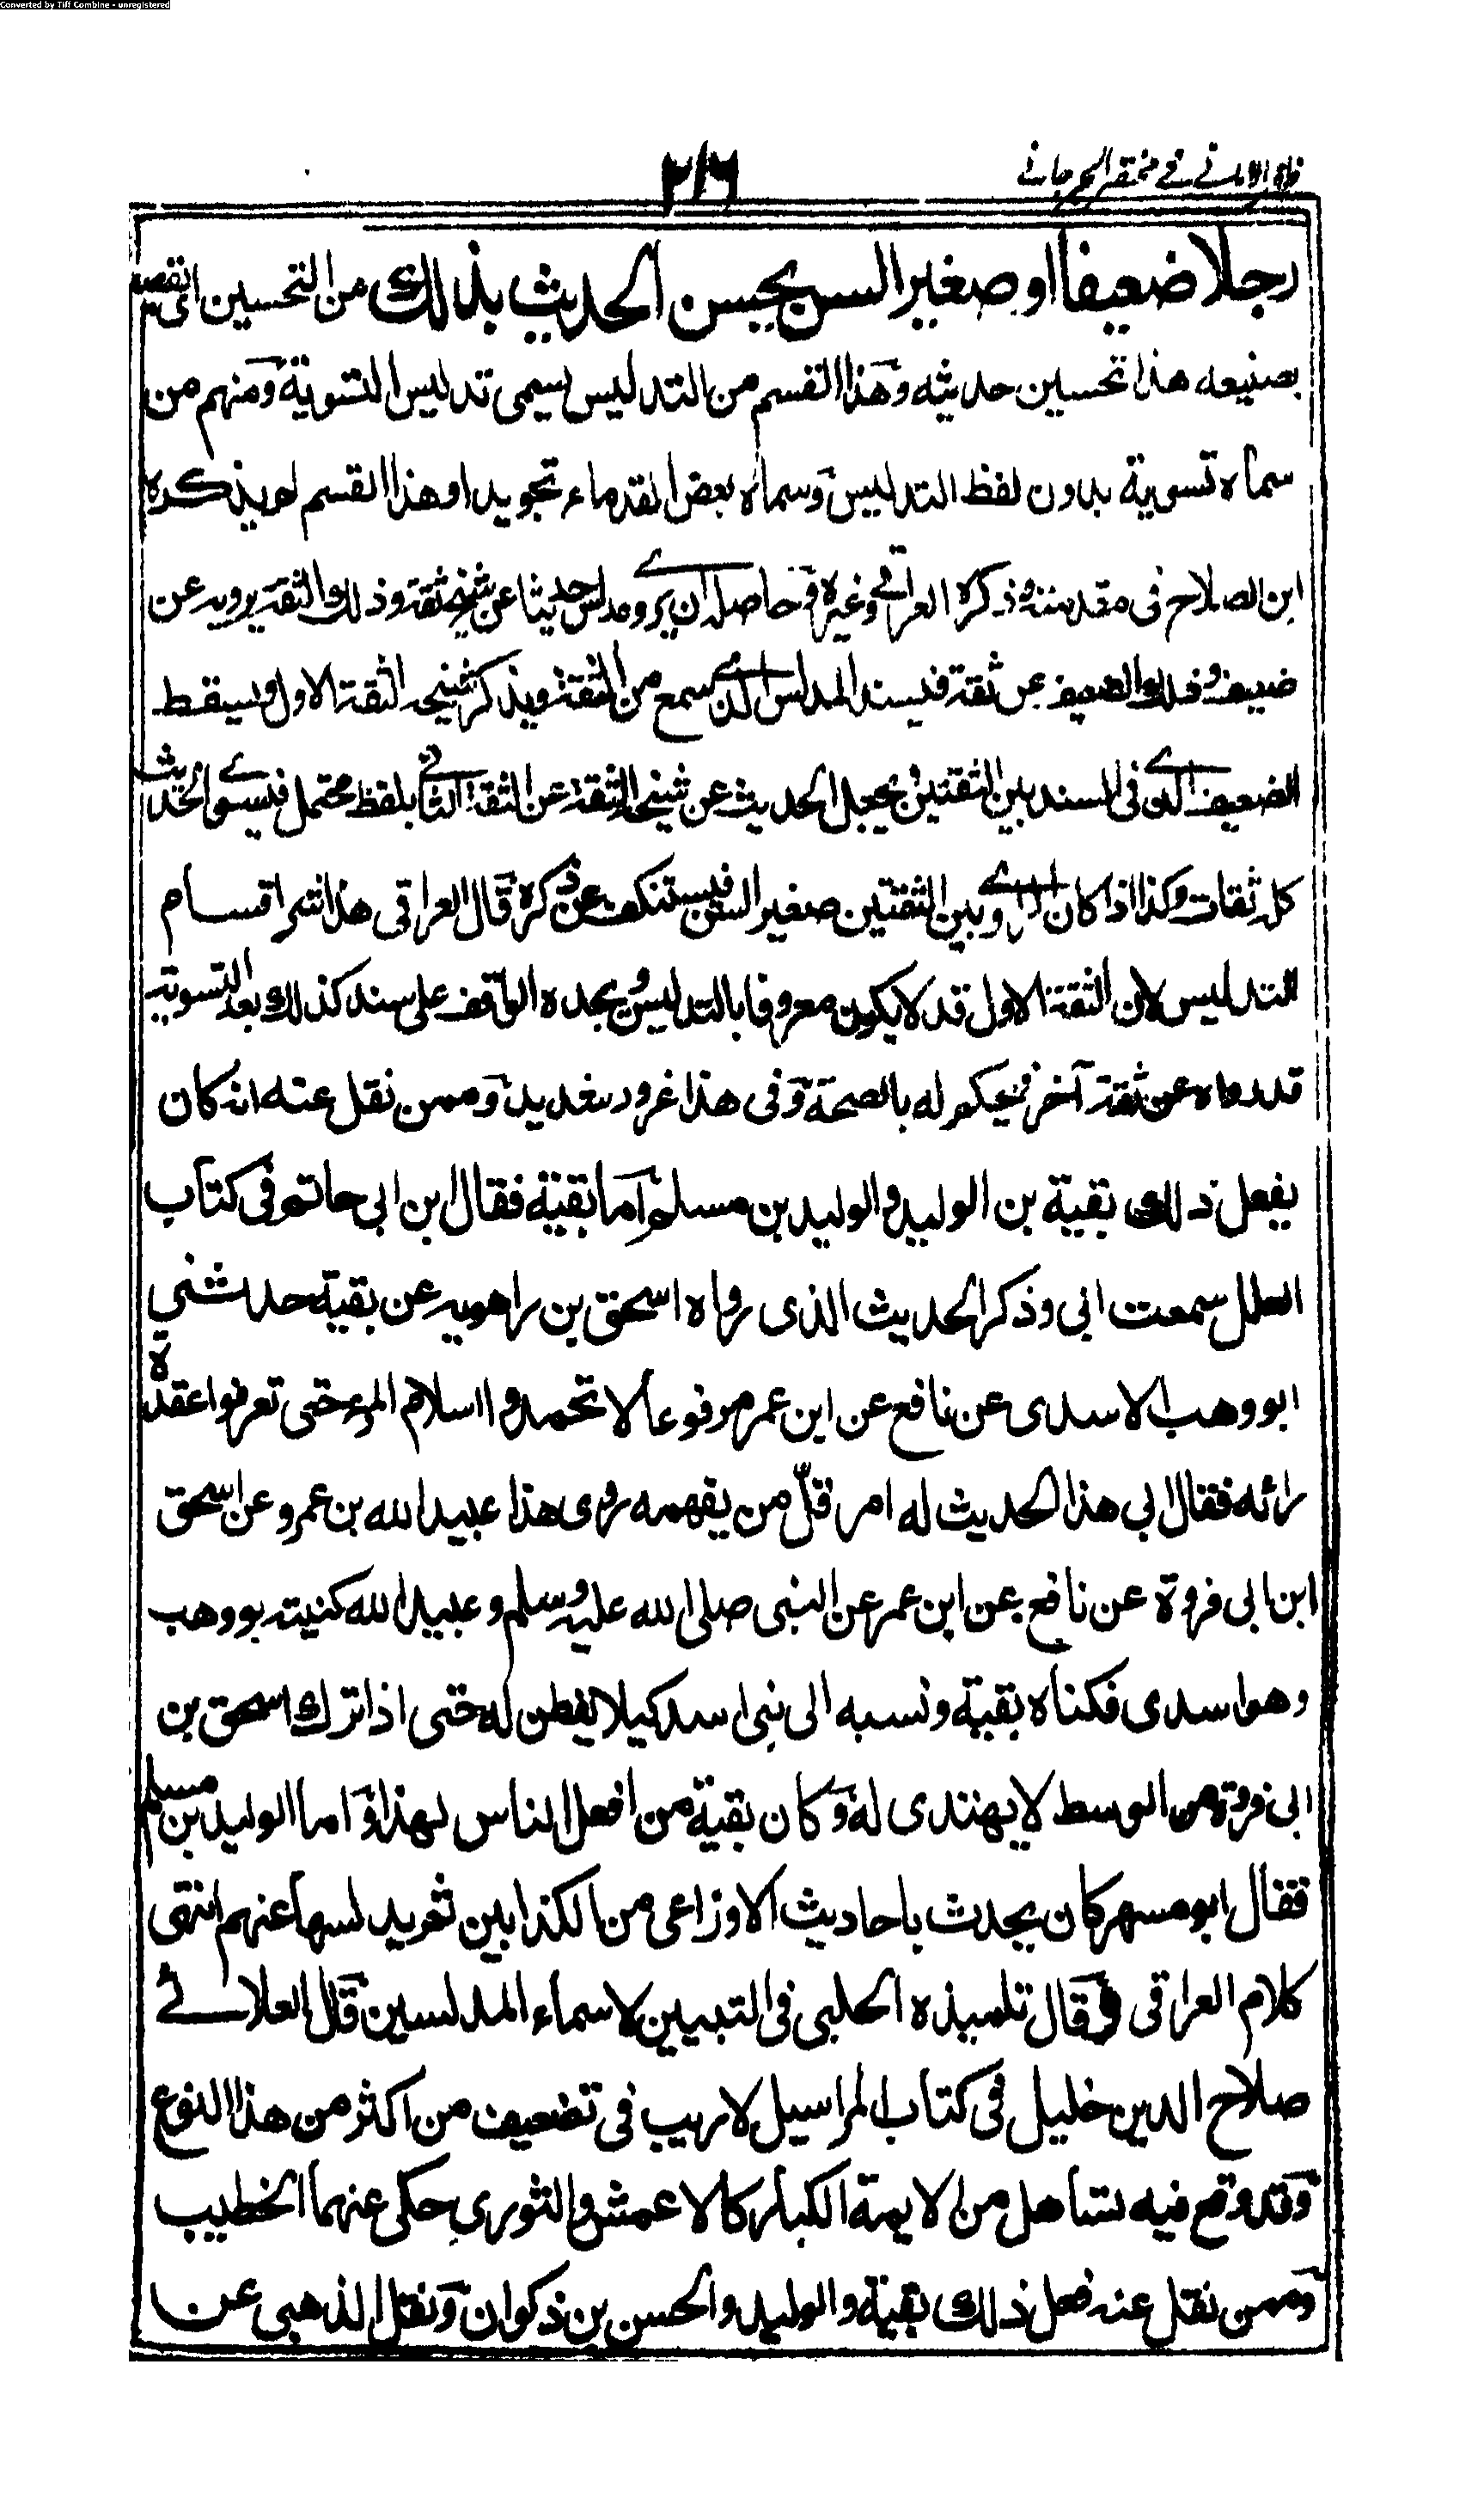 Converted by Tiff Combine - unregistered
ظفر الامانے فے مختصر الجرجانے
٢١٦
رجلا ضعيفا او صغير السن يحسن الحديث بذلك من التحسين اى يقصد
بصنيعه هذا تحسين حديثه وهذا القسم من التدليس يسمى تدليس التسوية ومنهم من
سماه تسوية بدون لفظ التدليس وسماه بعض القدماء تجويدا وهذا القسم لم يذكره
ابن الصلاح فى مقدمته وذكره العراقے وغيره وحاصله ان يروے مدلس حديثا عن شيخ ثقة وذلك الثقة يرويه عن
ضعيف وذلك الضعيف عن ثقة فيسند المدلس الذے سمع من الثقة ويذكر شيخه الثقة الاول ويسقط
الضعيف الذے فى السند بين الثقتين ويجعل الحديث عن شيخه الثقة عن الثقة الثانے بلفظ محتمل فيستوے الحديث
كله ثقات وكذا اذا كان الراوے بين الثقتين صغير السن فيستنكف عن ذكره قال العراقى هذا شر اقسام
التدليس لان الثقة الاول قد لا يكون معروفا بالتدليس ويجده الواقف على سند كذلك بعد التسوية
قد رواه عن ثقة آخر فيحكم له بالصحة وفى هذا غرور شديد وممن نقل عنه انه كان
يفعل ذلك بقية بن الوليد والوليد بن مسلم اما بقية فقال ابن ابى حاتم فى كتاب
العلل سمعت ابى وذكر الحديث الذى رواه اسحق بن راهويه عن بقية حدثنى
ابو وهب الاسدى عن نافع عن ابن عمر مرفوعا لا تحمدوا اسلام المرء حتى تعرفوا عقدة
رائه فقال ابى هذا الحديث له امر قلّ من يفهمه روى هذا عبيد الله بن عمرو عن اسحق
ابن ابى فروة عن نافع عن ابن عمر عن النبى صلى الله عليه وسلم وعبيد الله كنيته بو وهب
وهو اسدى فكناه بقية ونسبه الى بنى اسد كيلا يفطن له حتى اذا ترك اسحق بن
ابى فروة من الوسط لا يهتدى له وكان بقية من افعل الناس لهذا واما الوليد بن مسلم
فقال ابو مسهر كان يحدث باحاديث الاوزاعى من الكذابين ثم يدلسها عنهم انتهى
كلام العراقى وقال تلميذه الحلبى فى التبيين لاسماء المدلسين قال العلائے
صلاح الدين خليل فى كتاب المراسيل لا ريب فى تضعيف من اكثر من هذا النوع
وقد وقع فيه تساهل من الايمة الكبار كالاعمش والثورى حكى عنهما الخطيب
وممن نقل عنه فعل ذلك بقية والوليد والحسن بن ذكوان ونقل الذهبى عن